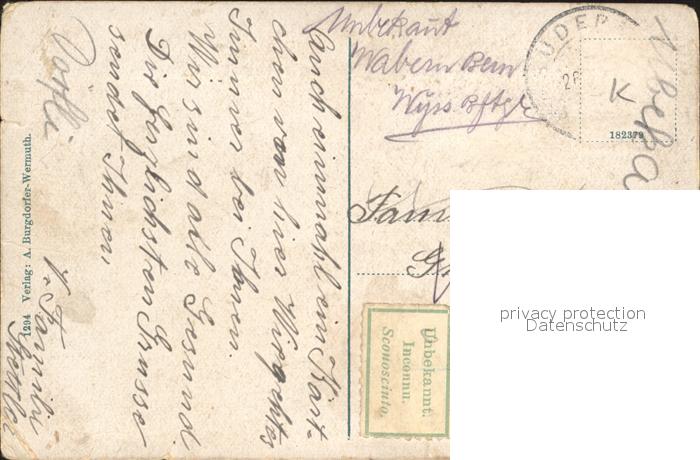 Unbekannt
Wabern Bern
Auch einmahl ein Kärt-
chen von hier Wir gehts
Immer bei Ihnen.
Wir sind alle Gesund
Die herzlichsten Grüsse
sendet Ihnen,
Famili
1294 Verlag: A. Burgdorfer-Wermuth.
K
182379
Fam
Unbekannt.
Inconnu.
Sconosciuto.
privacy protection
Datenschutz